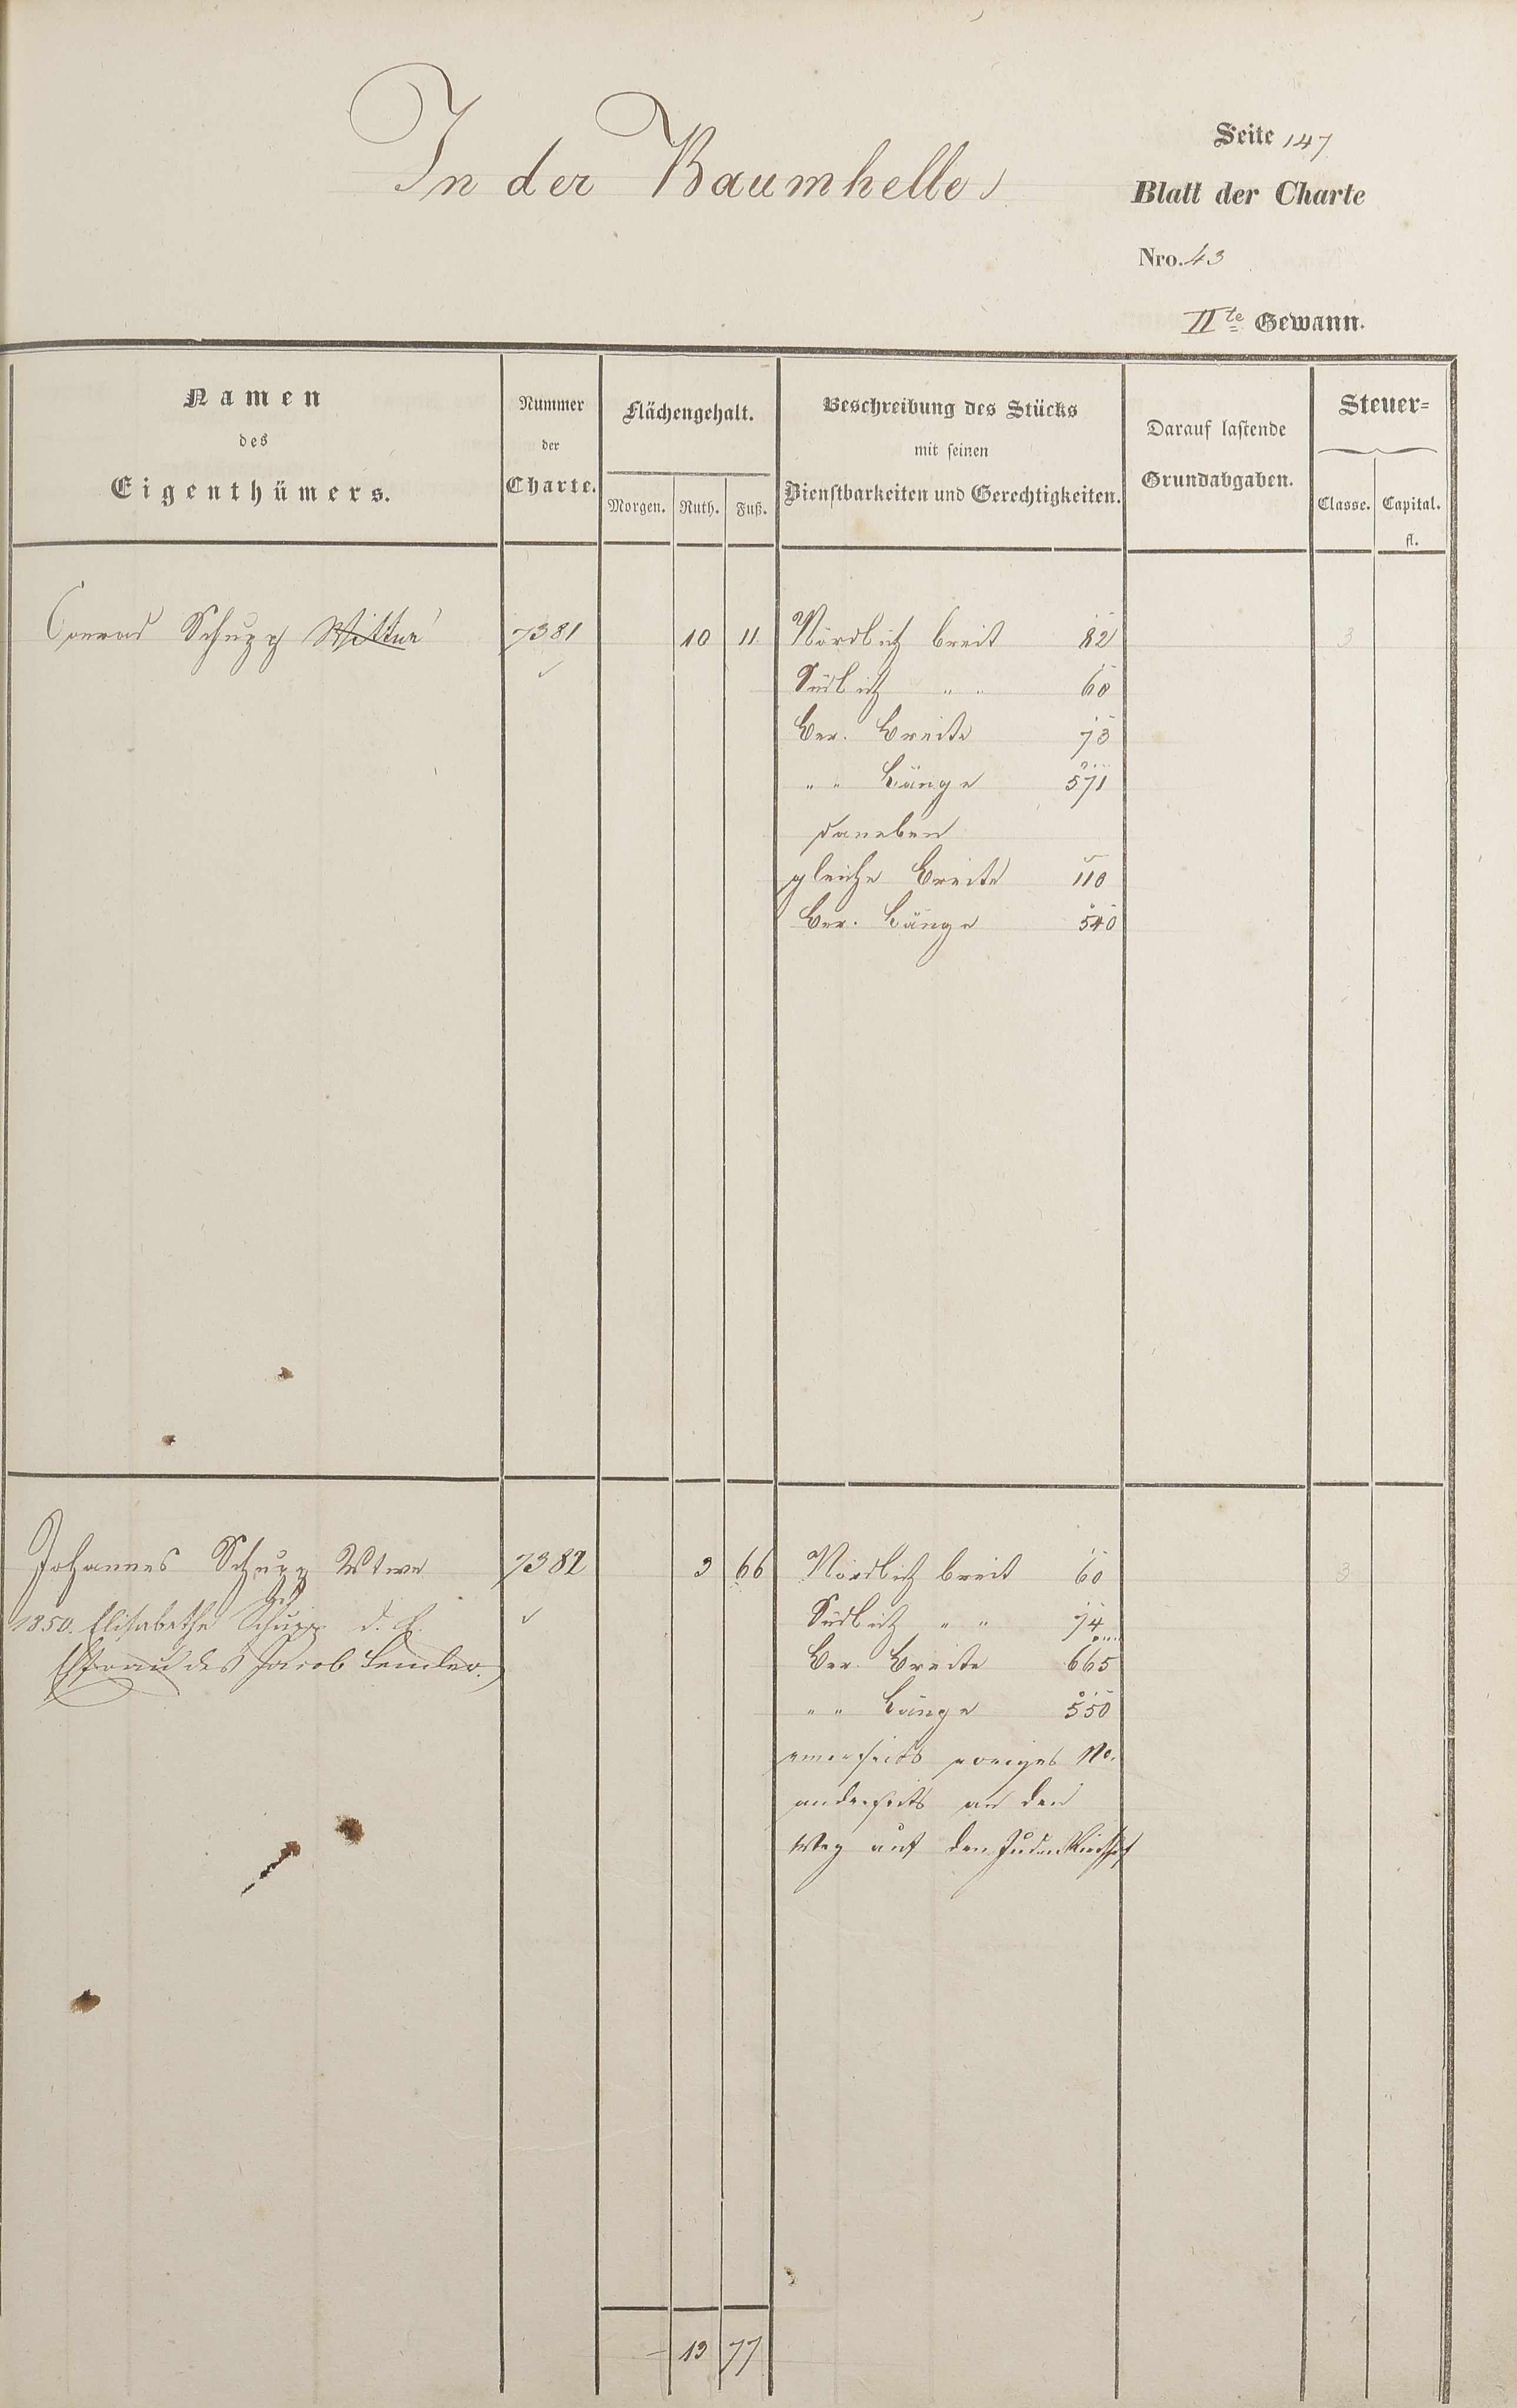 In der Baumhelle
Seite 147
Blatt der Charte
Nro. 43
IIte Gewann.
Namen
des
Eigenthümers.
Nummer
der
Charte.
Flächengehalt.
Morgen. Ruth. Fuß.
Beschreibung des Stücks
mit seinen
Dienstbarkeiten und Gerechtigkeiten.
Darauf lastende
Grundabgaben.
Steuer=
Classe. Capital.
fl.
Conrad Schupp Wittwe 7381 10 11 Nördlich breit 82 3
Südlich " " 60
Ber. Breite 73
" " Länge 571
daneben
gleiche Breite 110
Ber. Länge 540
Johannes Schupp Wtwe 7382 3 66 Nördlich breit 60 3
1850. Elisabethe Schupp d. Südlich " " 74
Ehefrau des Jacob Ber. Breite 665
" " Länge 550
einerseits voriges No.
anderseits an den
Weg auf den Juden Kirchhof
— 13 77